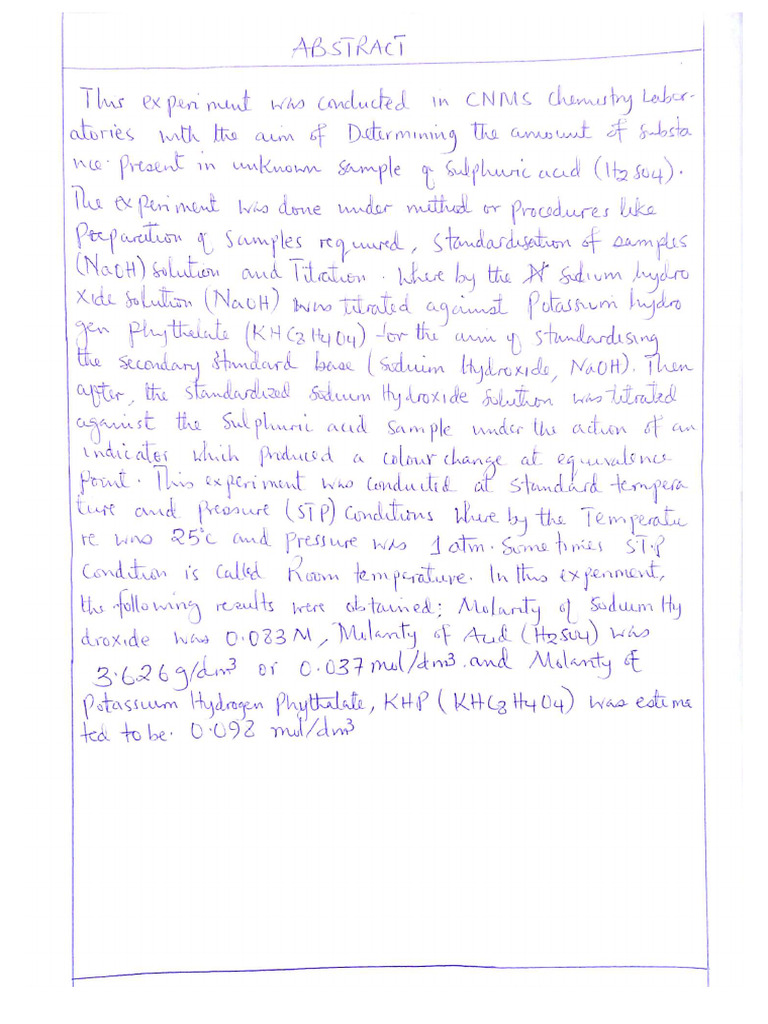 ABSTRACT
This experiment was conducted in CNMS Chemistry Labor-
atories with the aim of Determining the amount of substa
nce present in unknown sample of Sulphuric acid (H2SO4).
The experiment was done under method or procedures like
Preparation of samples required, Standardisation of samples
(NaOH) solution and Titration. Where by the Sodium hydro
xide solution (NaOH) was titrated against Potassium hydro
gen phythalate (KHC8H4O4) for the aim of standardising
the secondary standard base (Soduim Hydroxide, NaOH). Then
after, the standardized Sodium Hydroxide solution was titrated
against the Sulphuric acid sample under the action of an
indicator which produced a colour change at equivalence
point. This experiment was conducted at standard tempera
ture and pressure (STP) conditions where by the Temperatu
re was 25°c and pressure was 1 atm. Some times STP
Condition is called Room temperature. In this experiment,
the following results were obtained; Molarity of Sodium Hy
droxide was 0.083M, Molarity of Acid (H2SO4) was
3.626g/dm3 or 0.037 mol/dm3. and Molarity of
Potassium Hydrogen Phythalate, KHP (KHC8H4O4) was estima
ted to be. 0.092 mol/dm3